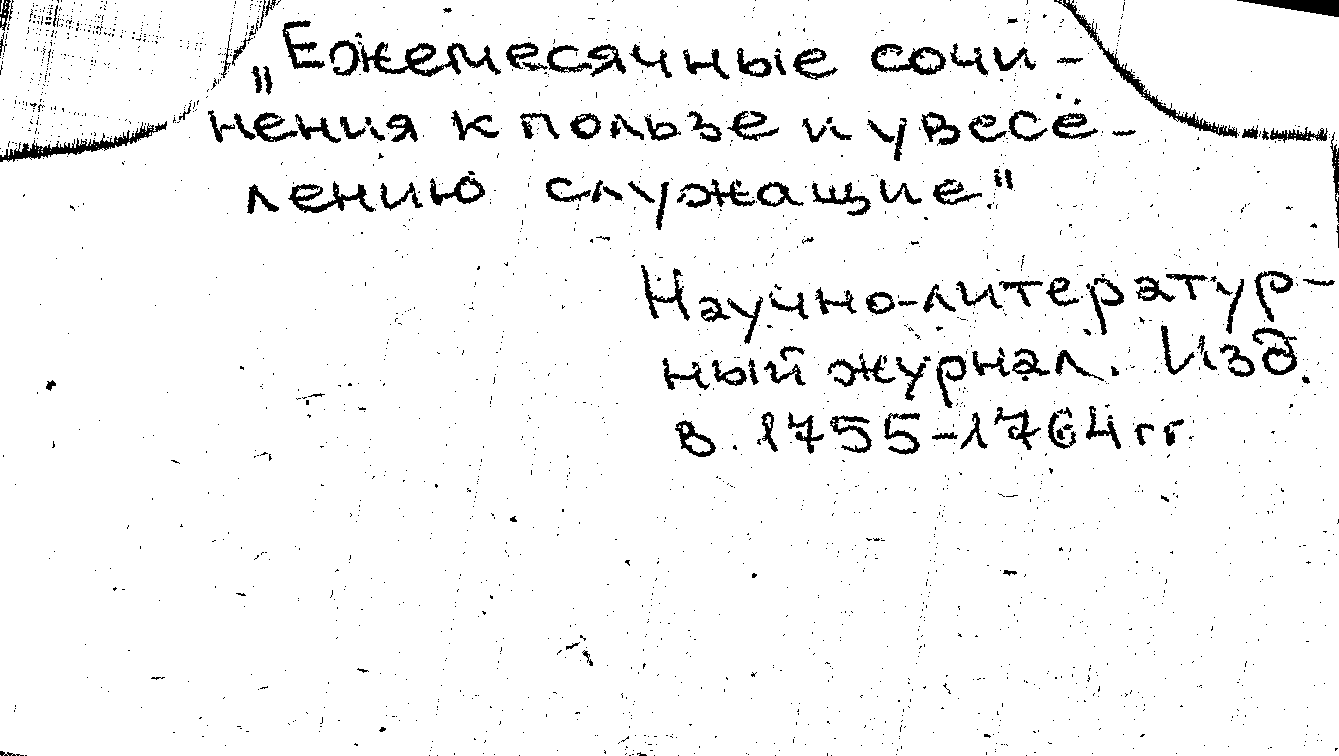 „Ежемесячные сочи-
нения к пользе и увесё-
лению служащие."
Научно-литератур-
ный журнал. Изд.
в. 1755-1764 гг